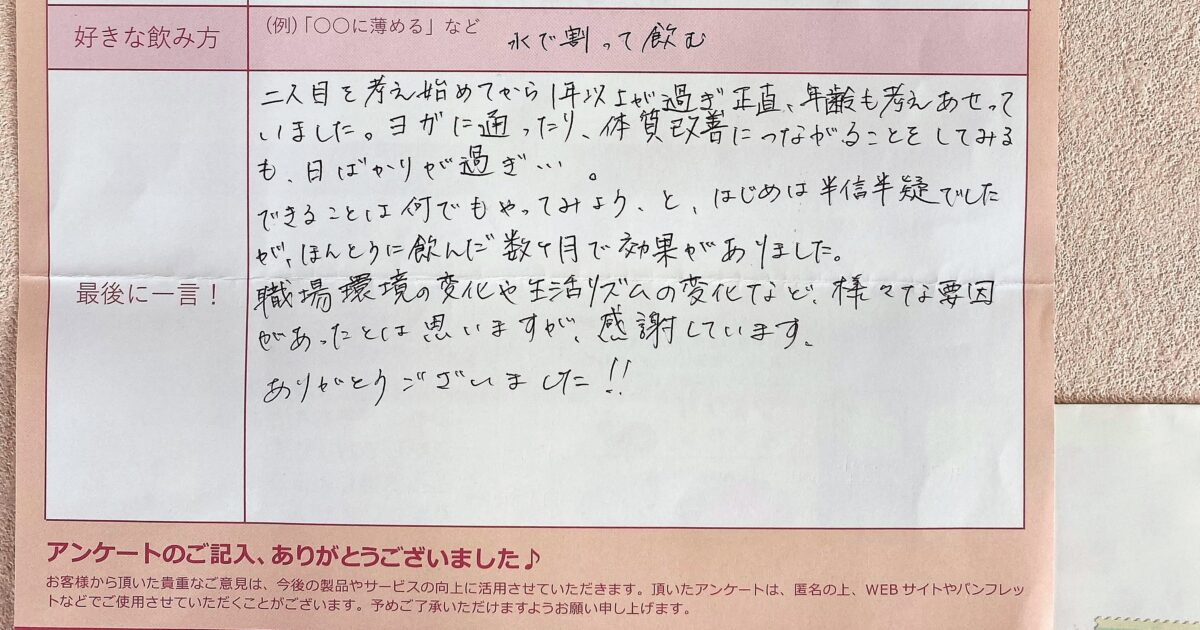 好きな飲み方
(例)「○○に薄める」など
水で割って飲む
最後に一言！
二人目を考え始めてから1年以上が過ぎ正直、年齢も考えあせって
いました。ヨガに通ったり、体質改善につながることをしてみる
も、日ばかりが過ぎ…。
できることは何でもやってみよう、と、はじめは半信半疑でした
が、ほんとうに飲んだ数ヶ月で効果がありました。
職場環境の変化や生活リズムの変化など、様々な要因
があったとは思いますが、感謝しています。
ありがとうございました!!
アンケートのご記入、ありがとうございました♪
お客様から頂いた貴重なご意見は、今後の製品やサービスの向上に活用させていただきます。頂いたアンケートは、匿名の上、WEBサイトやパンフレッ
トなどでご使用させていただくことがございます。予めご了承いただけますようお願い申し上げます。